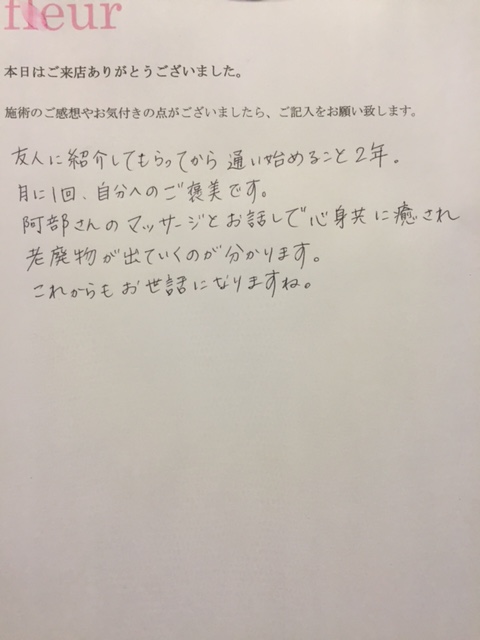 fleur
本日はご来店ありがとうございました。
施術のご感想やお気付きの点がございましたら、ご記入をお願い致します。
友人に紹介してもらってから通い始めること2年。
月に1回、自分へのご褒美です。
阿部さんのマッサージとお話しで心身共に癒され
老廃物が出ていくのが分かります。
これからもお世話になりますね。